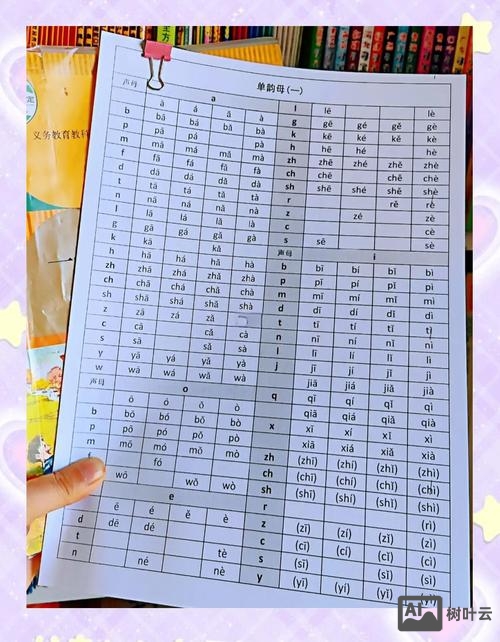 义务教育教科
单韵母(一)
声母 a
ā á ǎ à
b bā bá bǎ bà
p pā pá pà
m mā má mǎ mà
f fā fá fǎ fà
d dā dá dǎ dà
t tā
n ná nǎ nà
l lā lá lǎ là
g gā gá gǎ gà
k kā kǎ
h hā há hǎ hà
zh zhā zhá zhǎ zhà
ch chā chá chǎ chà
sh shā shá shǎ shà
z zā zá
c cā cǎ cà
s sā sǎ sà
y yā yá yǎ yà
w wā wá wǎ wà
声母 o
ō ó ǒ ò
b bō bó bǒ bò
p pō pó pǒ pò
m mō mó mǒ mò
fó
wō wǒ wò
e
ē é ě è
d dē dé
t tè
n né nè
l lē lè
g gē gé gě gè
k kē ké kě kè
h hē hé hè
zh zhē zhé zhě zhè
ch chē chě chè
sh shē shé shě shè
r rě rè
z zé zè
c cè
s sē sè
声母 i
b bī bí bǐ bì
p pī pí pǐ pì
m mī mí mǐ mì
d dī dí dǐ dì
t tī tí tǐ tì
n nī ní nǐ nì
l lī lí lǐ lì
j jī jí jǐ jì
jiā jiá jiǎ jià
q qī qí qǐ qì
qiā qiá qiǎ qià
x xī xí xǐ xì
xiā xiá xiǎ xià
zh (zhī) (zhí) (zhǐ) (zhì)
ch (chī) (chí) (chǐ) (chì)
sh (shī) (shí) (shǐ) (shì)
r (rì)
z (zī) (zí) (zǐ) (zì)
c (cī) (cí) (cǐ) (cì)
s (sī) (sǐ) (sì)
y (yī) (yí) (yǐ) (yì)
AI 树叶云